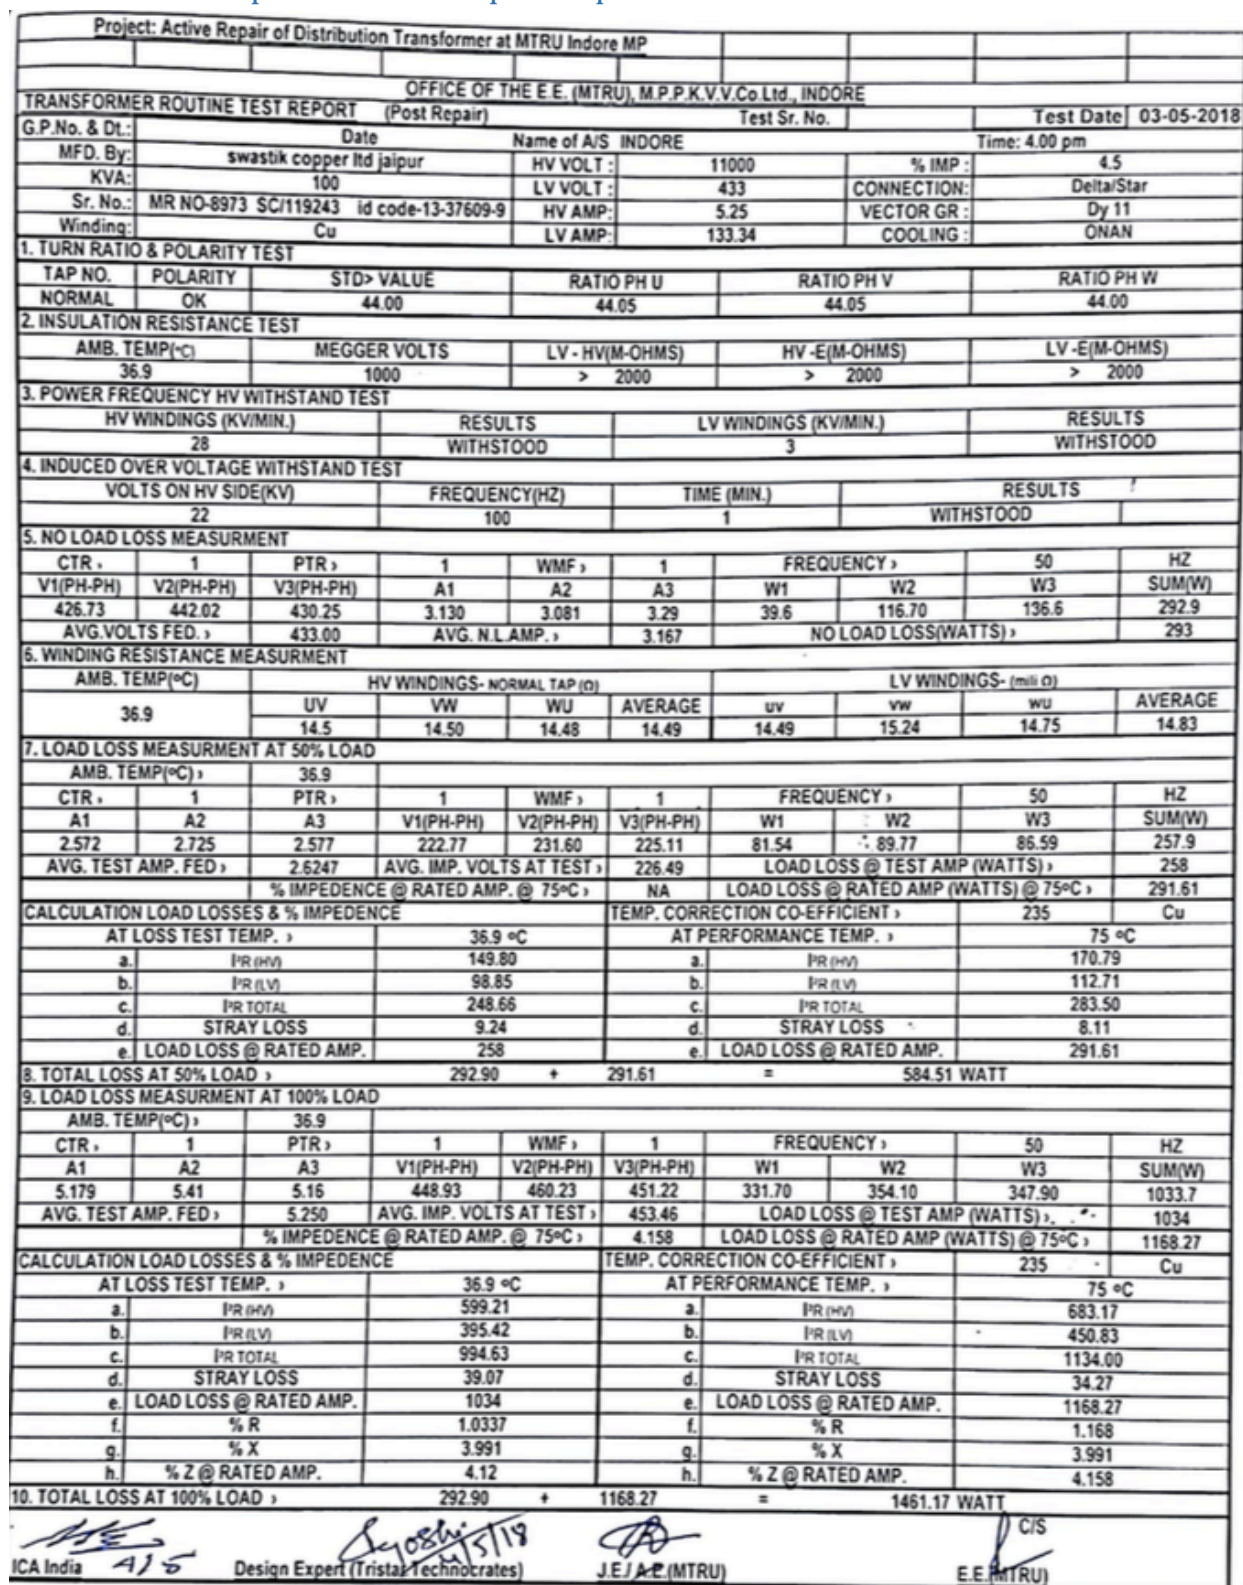 Project: Active Repair of Distribution Transformer at MTRU Indore MP
OFFICE OF THE E.E. (MTRU), M.P.P.K.V.V.Co.Ltd., INDORE
TRANSFORMER ROUTINE TEST REPORT (Post Repair) Test Sr. No. Test Date 03-05-2018
G.P.No. & Dt.: Date Name of A/S INDORE Time: 4.00 pm
MFD. By: swastik copper ltd jaipur HV VOLT : 11000 % IMP : 4.5
KVA: 100 LV VOLT : 433 CONNECTION: Delta/Star
Sr. No.: MR NO-8973 SC/119243 id code-13-37609-9 HV AMP: 5.25 VECTOR GR : Dy 11
Winding: Cu LV AMP: 133.34 COOLING : ONAN
1. TURN RATIO & POLARITY TEST
TAP NO. POLARITY STD> VALUE RATIO PH U RATIO PH V RATIO PH W
NORMAL OK 44.00 44.05 44.05 44.00
2. INSULATION RESISTANCE TEST
AMB. TEMP(°C) MEGGER VOLTS LV - HV(M-OHMS) HV -E(M-OHMS) LV -E(M-OHMS)
36.9 1000 > 2000 > 2000 > 2000
3. POWER FREQUENCY HV WITHSTAND TEST
HV WINDINGS (KV/MIN.) RESULTS LV WINDINGS (KV/MIN.) RESULTS
28 WITHSTOOD 3 WITHSTOOD
4. INDUCED OVER VOLTAGE WITHSTAND TEST
VOLTS ON HV SIDE(KV) FREQUENCY(HZ) TIME (MIN.) RESULTS
22 100 1 WITHSTOOD
5. NO LOAD LOSS MEASURMENT
CTR › 1 PTR › 1 WMF › 1 FREQUENCY › 50 HZ
V1(PH-PH) V2(PH-PH) V3(PH-PH) A1 A2 A3 W1 W2 W3 SUM(W)
426.73 442.02 430.25 3.130 3.081 3.29 39.6 116.70 136.6 292.9
AVG.VOLTS FED. › 433.00 AVG. N.L.AMP. › 3.167 NO LOAD LOSS(WATTS) › 293
6. WINDING RESISTANCE MEASURMENT
AMB. TEMP(ºC) HV WINDINGS- NORMAL TAP (Ω) LV WINDINGS- (mili Ω)
UV VW WU AVERAGE uv vw wu AVERAGE
36.9 14.5 14.50 14.48 14.49 14.49 15.24 14.75 14.83
7. LOAD LOSS MEASURMENT AT 50% LOAD
AMB. TEMP(ºC) › 36.9
CTR › 1 PTR › 1 WMF › 1 FREQUENCY › 50 HZ
A1 A2 A3 V1(PH-PH) V2(PH-PH) V3(PH-PH) W1 W2 W3 SUM(W)
2.572 2.725 2.577 222.77 231.60 225.11 81.54 89.77 86.59 257.9
AVG. TEST AMP. FED › 2.6247 AVG. IMP. VOLTS AT TEST › 226.49 LOAD LOSS @ TEST AMP (WATTS) › 258
% IMPEDENCE @ RATED AMP. @ 75ºC › NA LOAD LOSS @ RATED AMP (WATTS) @ 75ºC › 291.61
CALCULATION LOAD LOSSES & % IMPEDENCE TEMP. CORRECTION CO-EFFICIENT › 235 Cu
AT LOSS TEST TEMP. › 36.9 ºC AT PERFORMANCE TEMP. › 75 ºC
a. I²R (HV) 149.80 a. I²R (HV) 170.79
b. I²R (LV) 98.85 b. I²R (LV) 112.71
c. I²R TOTAL 248.66 c. I²R TOTAL 283.50
d. STRAY LOSS 9.24 d. STRAY LOSS 8.11
e. LOAD LOSS @ RATED AMP. 258 e. LOAD LOSS @ RATED AMP. 291.61
8. TOTAL LOSS AT 50% LOAD › 292.90 + 291.61 = 584.51 WATT
9. LOAD LOSS MEASURMENT AT 100% LOAD
AMB. TEMP(ºC) › 36.9
CTR › 1 PTR › 1 WMF › 1 FREQUENCY › 50 HZ
A1 A2 A3 V1(PH-PH) V2(PH-PH) V3(PH-PH) W1 W2 W3 SUM(W)
5.179 5.41 5.16 448.93 460.23 451.22 331.70 354.10 347.90 1033.7
AVG. TEST AMP. FED › 5.250 AVG. IMP. VOLTS AT TEST › 453.46 LOAD LOSS @ TEST AMP (WATTS) › 1034
% IMPEDENCE @ RATED AMP. @ 75ºC › 4.158 LOAD LOSS @ RATED AMP (WATTS) @ 75ºC › 1168.27
CALCULATION LOAD LOSSES & % IMPEDENCE TEMP. CORRECTION CO-EFFICIENT › 235 Cu
AT LOSS TEST TEMP. › 36.9 ºC AT PERFORMANCE TEMP. › 75 ºC
a. I²R (HV) 599.21 a. I²R (HV) 683.17
b. I²R (LV) 395.42 b. I²R (LV) 450.83
c. I²R TOTAL 994.63 c. I²R TOTAL 1134.00
d. STRAY LOSS 39.07 d. STRAY LOSS 34.27
e. LOAD LOSS @ RATED AMP. 1034 e. LOAD LOSS @ RATED AMP. 1168.27
f. % R 1.0337 f. % R 1.168
g. % X 3.991 g. % X 3.991
h. % Z @ RATED AMP. 4.12 h. % Z @ RATED AMP. 4.158
10. TOTAL LOSS AT 100% LOAD › 292.90 + 1168.27 = 1461.17 WATT
C/S
ICA India Design Expert (Tristar Technocrates) J.E./ A.E.(MTRU) E.E.(MTRU)